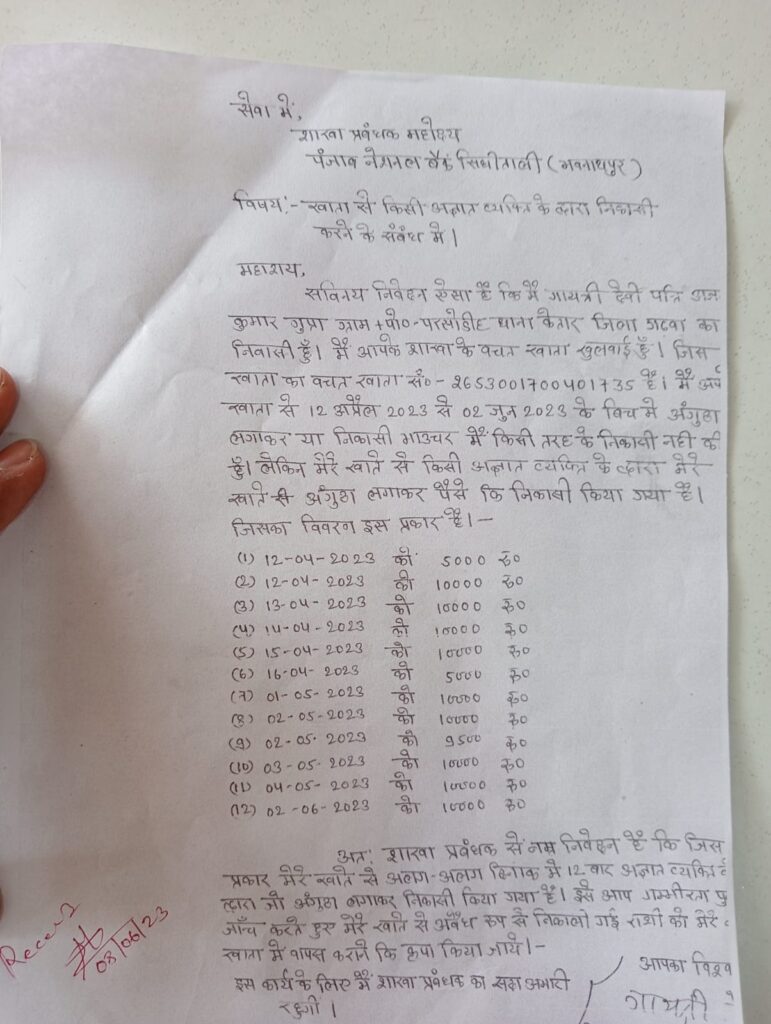 सेवा में,
शाखा प्रबंधक महोदय
पंजाब नेशनल बैंक सिंघीताली (भवनाथपुर)
विषय:- खाता से किसी अज्ञात व्यक्ति के द्वारा निकासी
करने के संबंध में।
महाशय,
सविनय निवेदन ऐसा है कि मैं गायत्री देवी पति
कुमार गुप्ता ग्राम+पो०-परसोडीह थाना केतार जिला गढवा का
निवासी हुँ। मैं आपके शाखा के वचत खाता खुलवाई हुँ। जिस
खाता का वचत खाता सं०- 2653001700401735 है। मैं
खाता से 12 अप्रैल 2023 से 02 जुन 2023 के विच मे अंगुठा
लगाकर या निकासी भाउचर में किसी तरह के निकासी नही की
हुँ। लेकिन मेरे खाते से किसी अज्ञात व्यक्ति के द्वारा मेरे
खाते से अंगुठा लगाकर पैसे कि निकासी किया गया है।
जिसका विवरण इस प्रकार है।-
(1) 12-04-2023 को 5000 रु०
(2) 12-04-2023 को 10000 रु०
(3) 13-04-2023 को 10000 रु०
(4) 14-04-2023 को 10000 रु०
(5) 15-04-2023 को 10000 रु०
(6) 16-04-2023 को 5000 रु०
(7) 01-05-2023 को 10000 रु०
(8) 02-05-2023 को 10000 रु०
(9) 02-05-2023 को 9500 रु०
(10) 03-05-2023 को 10000 रु०
(11) 04-05-2023 को 10000 रु०
(12) 02-06-2023 को 10000 रु०
अत: शाखा प्रबंधक से नम्र निवेदन है कि जिस
प्रकार मेरे खाते से अलग-अलग दिनांक में 12 वार अज्ञात व्यक्ति
द्वारा जो अंगुठा लगाकर निकासी किया गया है। इसे आप गम्भीरता पु
जाँच करते हुए मेरे खाते से अवैध रूप से निकाली गई राशी को मेरे
खाता में वापस कराने कि कृपा किया जाये।-
इस कार्य के लिए मैं शाखा प्रबंधक का सदा अभारी
रहुगी।
आपका विश्व
गायत्री
03/06/23